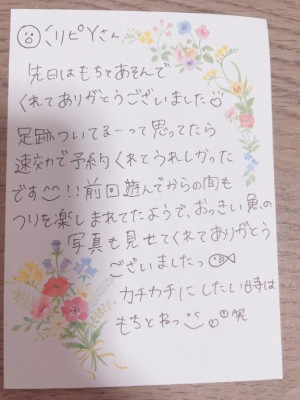 リピYさん
先日はもちとあそんで
くれてありがとうございました
足跡ついてるーって思ってたら
速攻で予約くれてうれしかった
です!!前回遊んでからの間も
つりを楽しまれてたようで、おっきい魚の
写真も見せてくれてありがとう
ございましたっ
カチカチにしたい時は
もちとねっ